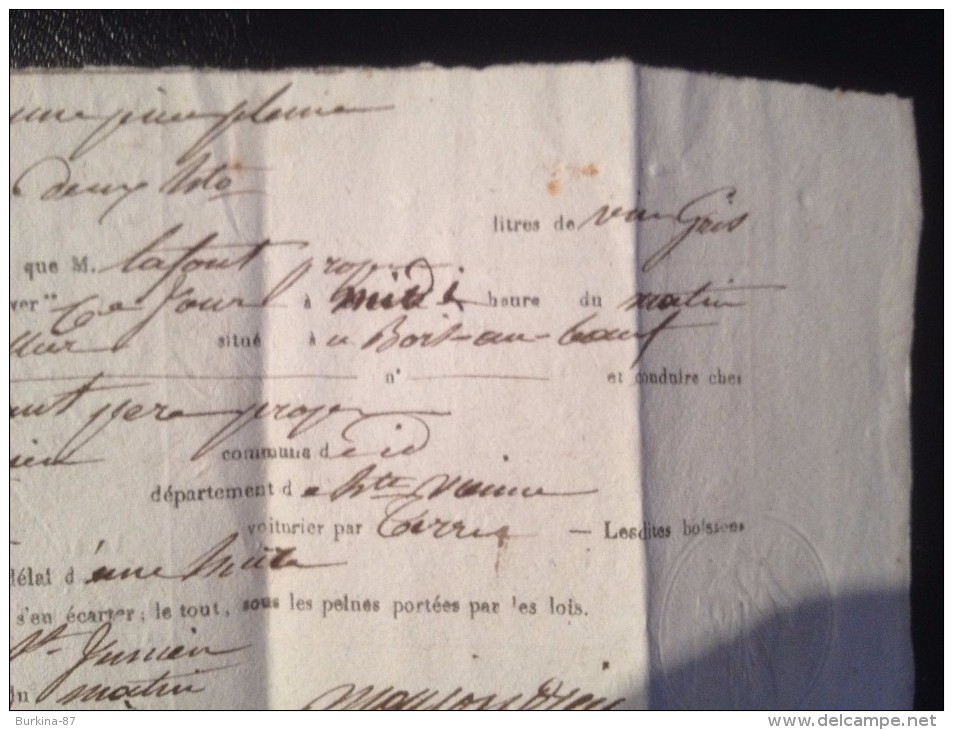 une pièce pleine
deux hto
litres de vin Gris
que M. Lafont prop
er" Ce Jour à midi heure du matin
situé à u Bort-au-bœuf
n° et conduire chez
père prop
commune d id
département d e hte vienne
voiturier par Terre — Lesdites boissons
délai d'une huit
s'en écarter; le tout, sous les peines portées par les lois.
St Junien
du matin
Burkina-87
www.delcampe.net